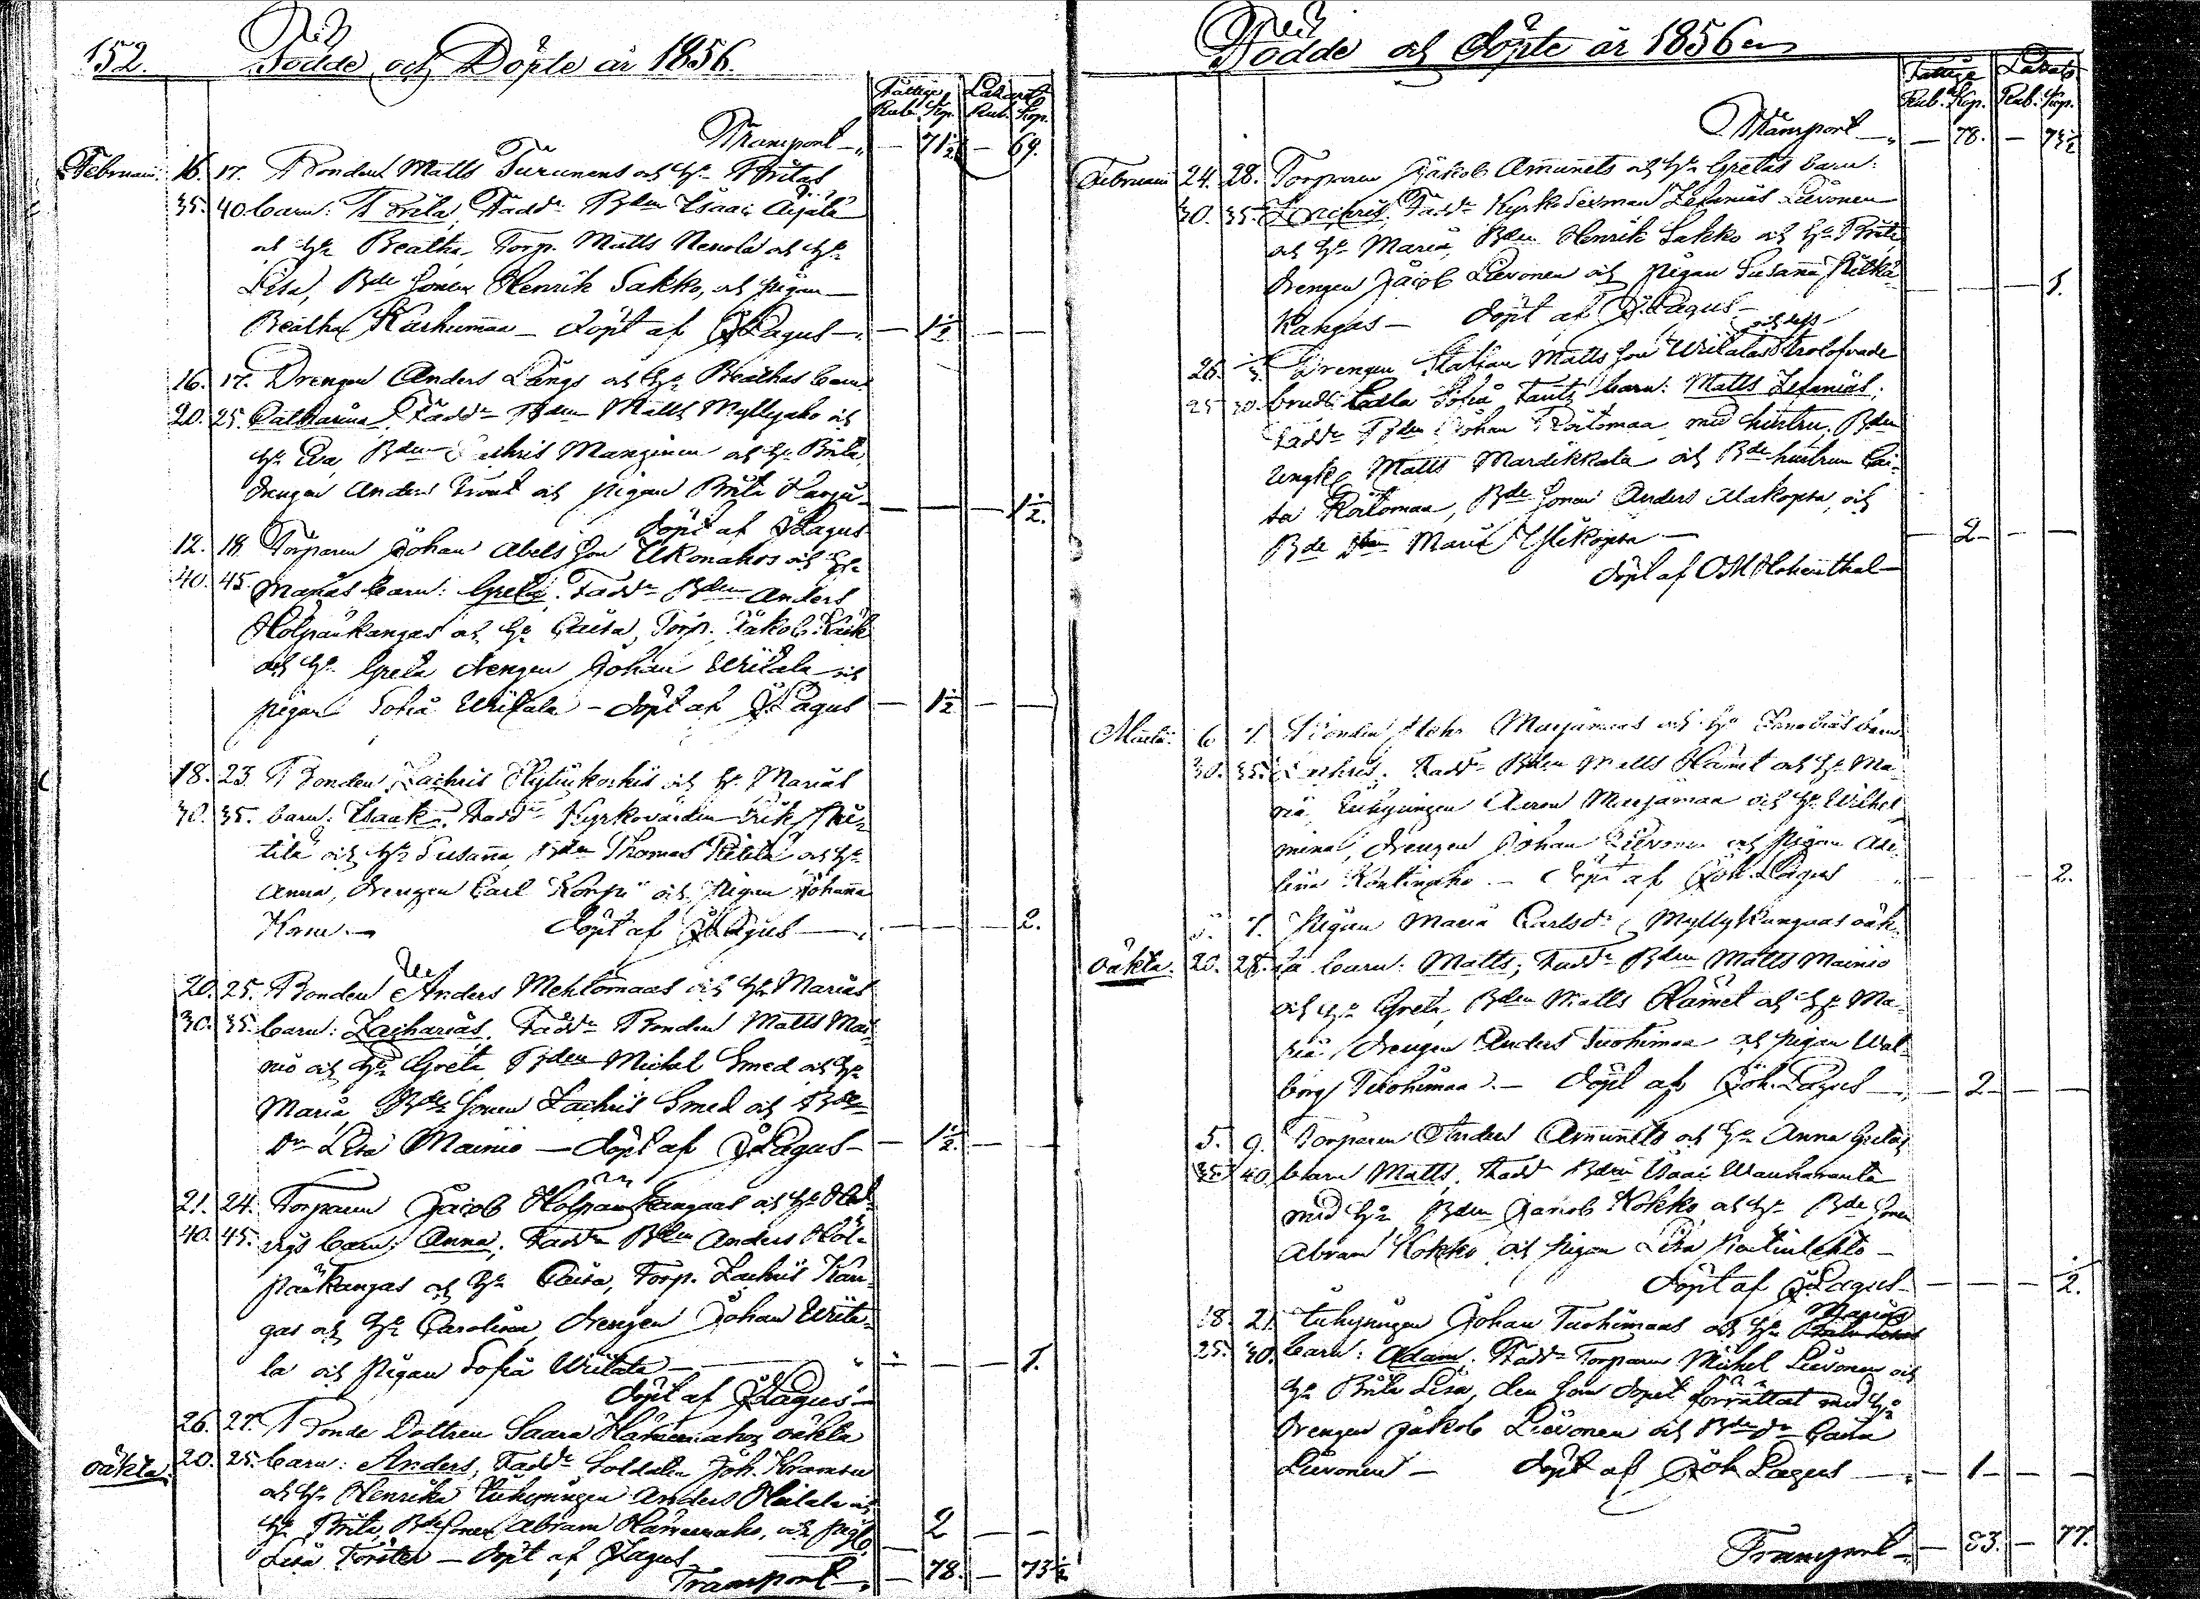 152. Födde och Döpte år 1856
Fattige Lazarett
Rub. Kop. Rub. Kop.
Transport — 71½ — 69.
Februari 16. 17. Bonden Matts Turunens och Hu Britas
35. 40 barn: Brita, Faddr Bden Isaac Ajala
och Hu Beatha, Torp. Matts Nenola och Hu
Lisa, Bde sonen Henrik Sakko, och pigan
Beatha Karhumaa — döpt af J Lagus — 1½ — —
16. 17. Drengen Anders Långs och Hu Beathas barn
20. 25. Catharina, Faddr Bden Matts Myllyaho och
Hu Eva, Bden Zachris Manginen och Hu Brita,
drengen Anders och pigan Brita Harju
döpt af J Lagus — — — 1½.
12. 18. Torparen Johan Abelsson Ukonahos och Hu
40. 45. Marias barn: Greta, Faddr Bden Anders
Holpankangas och Hu Caisa, Torp. Jakob
och Hu Greta, drengen Johan Writala och
pigan Sofia Writala — döpt af J Lagus — 1½ — —
18. 23. Bonden Zachris och Hu Marias
30. 35. barn: Isaak, Faddr Kyrkovärden Erik
tila och Hu Susanna, Bden Thomas och Hu
Anna, drengen Carl Korpi och pigan Johanna
döpt af J Lagus — — — 2.
20. 25. Bonden Anders Mehtomaas och Hu Marias
30. 35. barn: Zacharias, Faddr Bonden Matts Mai-
nio och Hu Greta, Bden Michel Smed och Hu
Maria, Bde sonen Zachris Smed och Bde
dr Lisa Mainio — döpt af J Lagus — 1½ — —
21. 24. Torparen Jacob Holpankangas och Hu Hed-
40. 45. vigs barn: Anna, Faddr Bden Anders Hol-
pankangas och Hu Caisa, Torp. Zachris Kan-
gas och Hu Carolina, drengen Johan Writa-
la och pigan Sofia Writala — — — — 1.
döpt af J Lagus —
26. 27. Bonde Dottren Saara Hämeenahos oäkta
oäkta. 20. 25. barn: Anders, Faddr Soldaten Joh. Kramsu
och Hu Henrika, Inhysingen Anders Heilala och
Hu Brita, Bde sonen Abram Hämeenaho, och pig.
Lisa Forsten — döpt af J Lagus — 2 — —
Transport — 78. — 73½
Födde och döpte år 1856
Fattige Lazarett
Rub. Kop. Rub. Kop.
Transport — 78. — 73½
Februari 24. 28. Torparen Jakob Amunets och Hu Gretas barn:
30. 35. Zachris, Faddr Kyrko Sexman Zefanias Lievonen
och Hu Maria, Bden Henrik Sakko och Hu Brita
drengen Jacob Lievonen och pigan Susanna Pitkä-
kangas — döpt af J Lagus — — — — 1.
26. Drengen Staffan Mattsson Writalas och dess trolofvade
25 30. brud Edla Sofia barn: Matts Zefanias,
Faddr Bden Johan Roitomaa med hustru, Bden
Matts Mardikkala och Bde hustrun Cai-
sa Roitomaa, Bde sonen Anders Alakopsa, och
Bde dtren Maria Ylikopsa — — 2 — —
döpt af OM Hohenthal —
Martii. 6 7. Bonden Mich. Marjamaas och Hu barn
30. 35. Zachris, Faddr Bden Matts Hämet och Hu Ma-
ria, Inhysingen Aron Marjamaa och Hu Wilhel-
mina, drengen Johan Lievonen och pigan Ade-
lina Kontinaho — döpt af Joh. Lagus — — — 2.
5. 7. Pigan Maria Carlsdr Myllykangaas oäk-
oäkta. 20. 25. ta barn: Matts, Faddr Bden Matts Mainio
och Hu Greta, Bden Matts Hämet och Hu Ma-
ria, drengen Anders Tuohimaa och pigan Wal-
borg Tuohimaa — döpt af Joh. Lagus — 2 — —
5. 9. Torparen Anders Amunets och Hu Anna Gretas
35. 40 barn Matts, Faddr Bden Isaac Wanharanta
med Hu, Bden Jacob Kokko och Hu, Bde sonen
Abram Kokko och pigan Lisa —
döpt af J Lagus — — — — ½.
18. 21. Inhysingen Johan Tuohimaas och Hu Marias
25. 30. barn: Adam, Faddr Torparen Michel Lievonen och
Hu Brita Lisa, den som dopet förrättat med Hu
drengen Jakob Lievonen och Bde dr Caisa
Lievonen — döpt af Joh Lagus — 1 — —
Transport — 83. — 77.